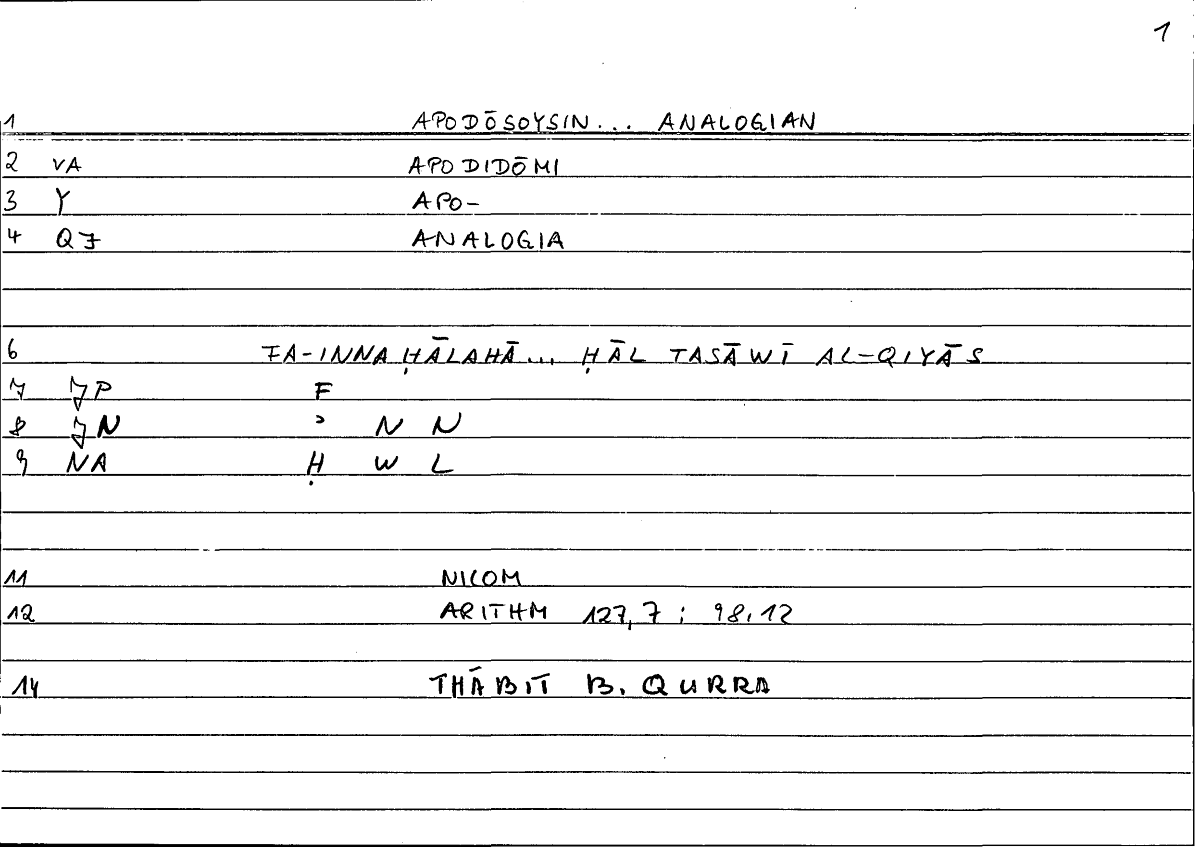 1
1 APODŌSOYSIN... ANALOGIAN
2 VA APODIDŌMI
3 Y APO-
4 QJ ANALOGIA
6 FA-INNA ḤĀLAHĀ... ḤĀL TASĀWĪ AL-QIYĀS
7 JP F
8 JN ʾ N N
9 NA Ḥ W L
11 NICOM
12 ARITHM 127,7 ; 98,12
14 THĀBIT B. QURRA